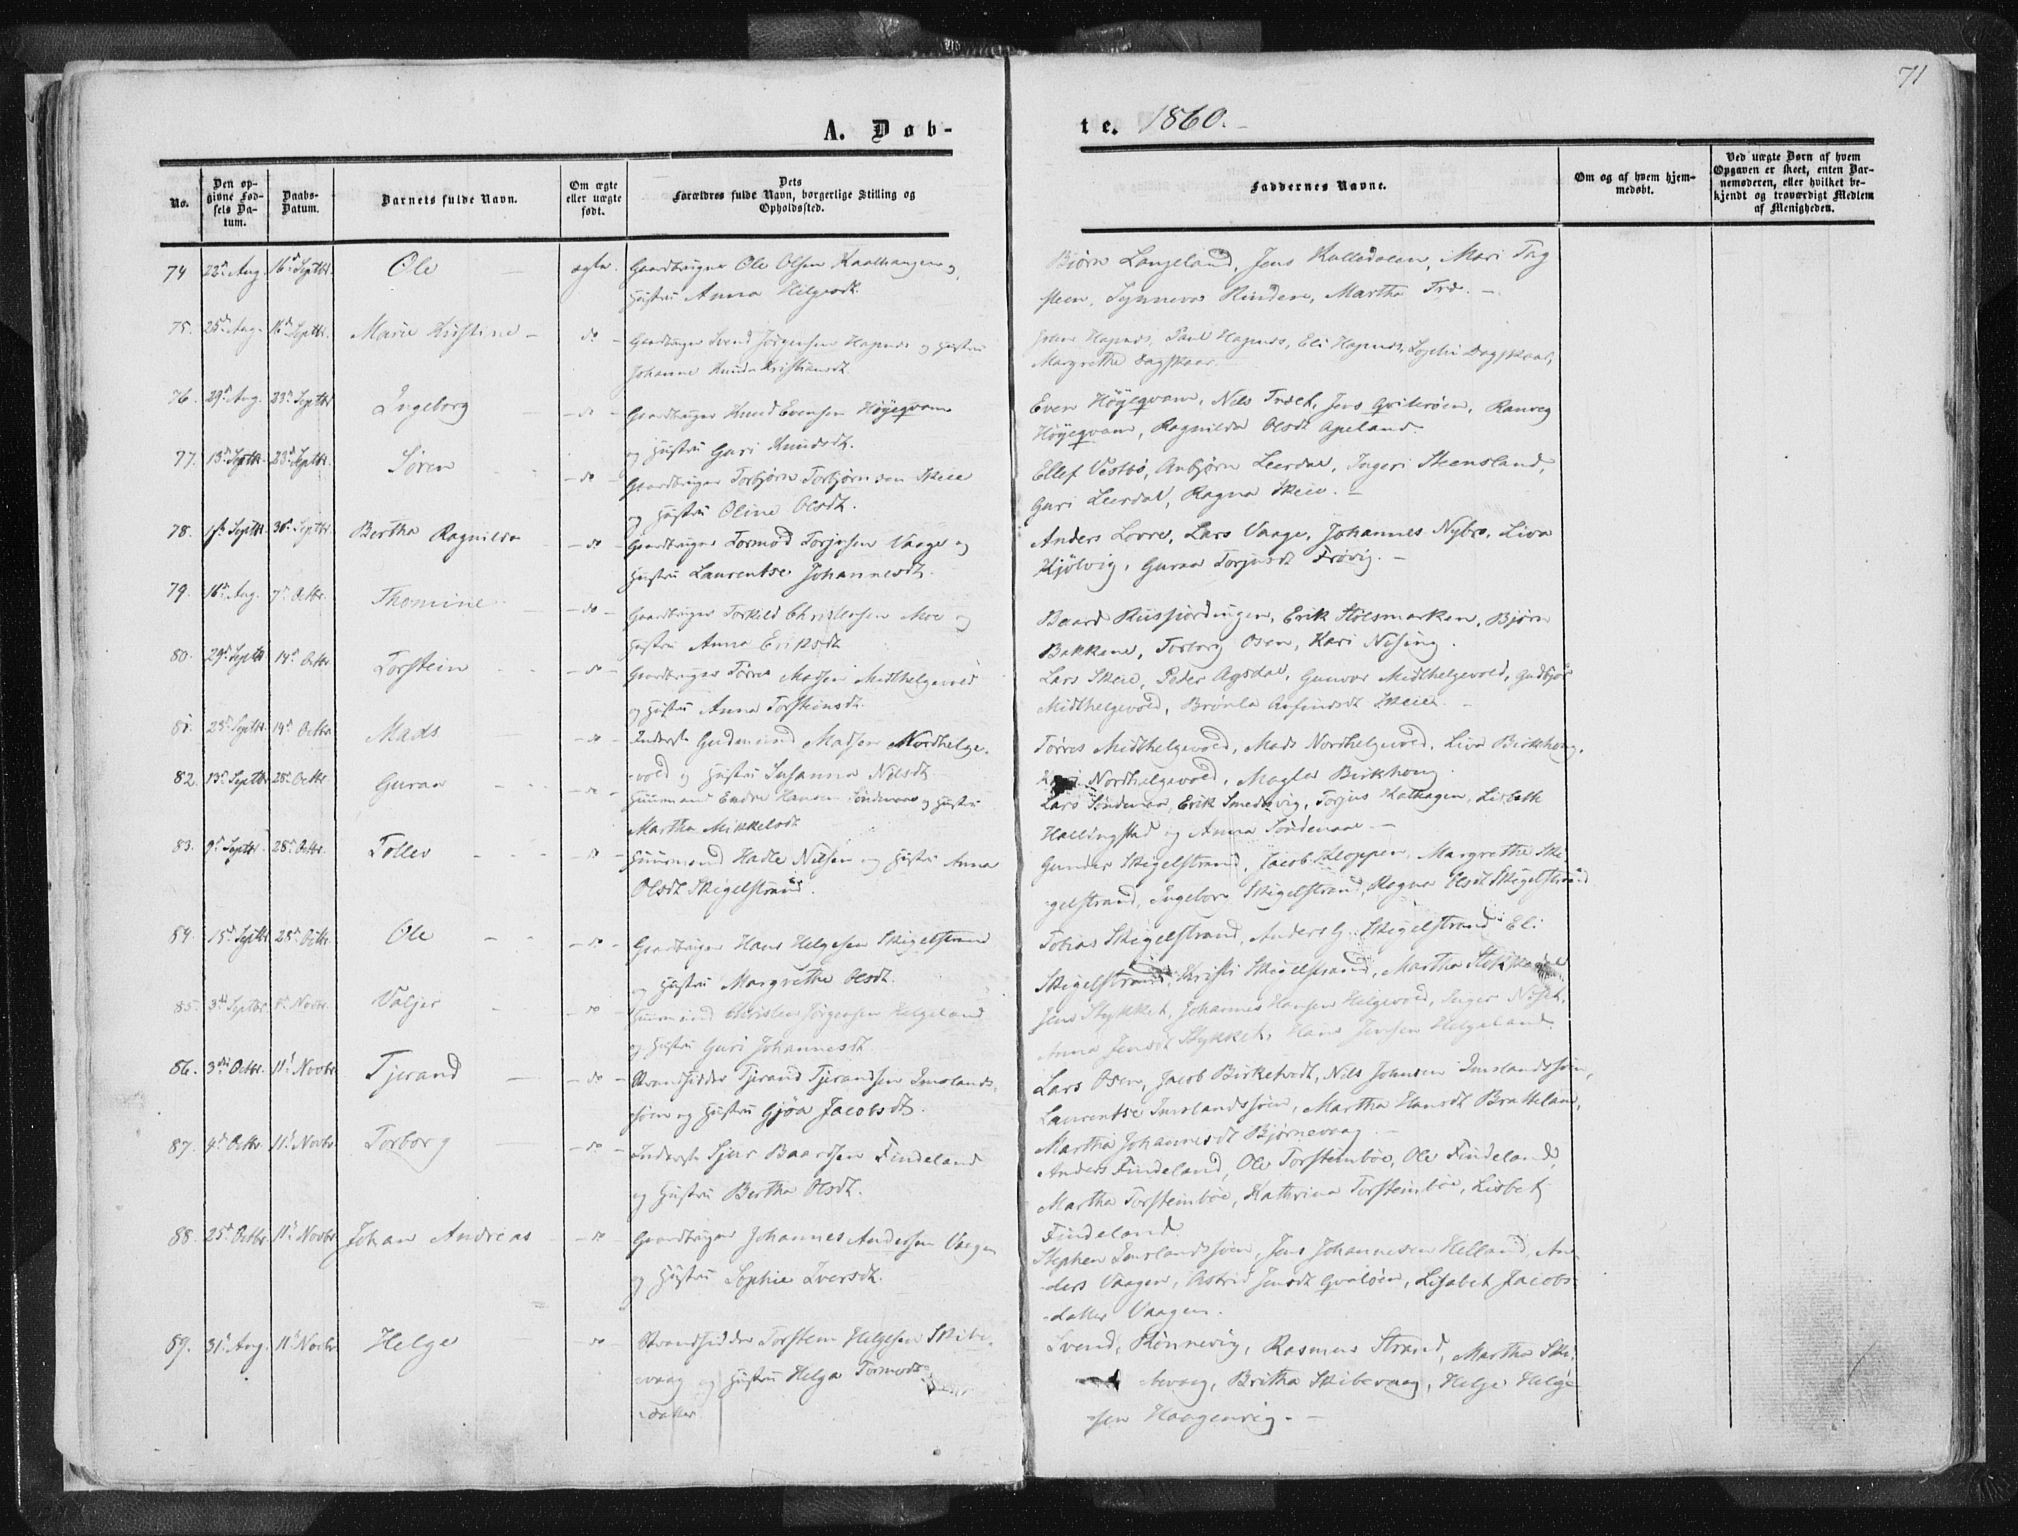 71
A. Döb-
te. 1860.
No.
Den op-
givne Fød-
sels Da-
tum.
Daabs-
Datum.
Barnets fulde Navn.
Om ægte
eller uægte
født.
Dets
Forældres fulde Navn, borgerlige Stilling og
Opholdssted.
Faddernes Navne.
Om og af hvem hjem-
medøbt.
Ved uægte Børn af hvem
Opgaven er skeet, enten Bar-
nemoderen, eller hvilket be-
kjendt og troværdigt Medlem
af Menigheden.
74 22d Aug. 16d Septbr. Ole ægte. Gaardbruger Ole Olsen Kaalhaugen og
Hustru Anna Helgesdt.
Bjørn Langeland, Jens Kalledalen, Mari Tag
steen, Synneva Rinden, Martha Træ. -
75. 25d Aug. 16d Septbr. Marie Kristine - do - Gaardbruger Svend Jørgensen Hapnes og Hustru
Johanne Kristiansdt.
Hapnes, Paul Hapnes, Eli Hapnes, Sophie Dagskaar,
Margrethe Dagskaar.
76. 29d Aug. 23d Septbr Ingeborg - do - Gaardbruger Knud Evensen Høyeqvam
og Hustru Guri Knudsdt.
Even Høyeqvam, Nils Træet, Jens Qvitersen, Ranveg
Høyeqvam, Ragnilda Olsdt Apeland.
77. 13d Septbr. 23d Septbr. Søren - do - Gaardbruger Torbjørn Torbjørnsen Skeie
og Hustru Oline Olsdt.
Ellef Vestbø, Anbjørn Leerdal, Ingeri Steensland,
Guri Leerdal, Ragna Skeie. -
78. Septbr 30d Septbr Bertha Ragnilda - do - Gaardbruger Tormod Torjusen Vaage og
Hustru Laurentse Johannesdt.
Anders Lovre, Lars Vaage, Johannes Nybro, Liva
Kjølvig, Guraa Torjusdt Frøvig. -
79. 16d Aug. 7d Octbr. Thomine - do - Gaardbruger Torkild Christensen Moe og
Hustru Anna Eriksdt
Baard Riisfiordingen, Erik Stølsmarken, Bjørn
Bakkene, Torborg Osen, Kari Nesing.
80. 29d Septbr 14d Octbr Torstein - do - Gaardbruger Tørres Madsen Midthelgevold
og Hustru Anna Torsteinsdt.
Lars Skeie, Peder Agsdal, Gunvor Midthelgevold, Gudbjør
Midthelgevold, Brønla Arfindsdt Skeie. -
81. 23d Septbr. 14d Octbr Mads - do - Inderst Gudmund Madsen Nordhelge-
-vold og Hustru Susanna Nilsdt
Tørres Midthelgevold, Mads Nordhelgevold, Liva Birkhoug,
Nordhelgevold, Magle Birkhoug.
82. 13d Septbr 28d Octbr Guraa - do - Huusmand Endre Hansen Søndenaa og Hustru
Martha Mikkelsdt
Lars Søndenaa, Erik Smedsvig, Torjus Hathagen, Lisbeth
Hallingstad og Anna Søndenaa -
83. 9d Septbr. 28d Octbr. Tollev - do - Huusmand Hadle Nilsen og Hustru Anna
Olsdt Skigelstrand.
Gunder Skigelstrand, Jacob Kloppen, Margrethe Ski
-gelstrand, Ingeborg Skigelstrand, Ragna Olsdt Skigelstrand
84. 15d Septbr 28d Octbr. Ole - do - Gaardbruger Hans Helgesen Skigelstrand
og Hustru Margrethe Olsdt.
Tobias Skigelstrand, Anders G. Skigelstrand Eli
Skigelstrand, Kristi Skigelstrand, Martha
85. 3d Septbr Novbr. Valjer - do - Huusmand Christen Jørgensen Helgeland
og Hustru Guri Johannesdt.
Jens Stykket, Johannes Hansen Helgevold, Inger
Anna Jensdt Stykket, Hans Jensen Helgeland
86. 3die Octbr. 11d Novbr Tjerand - do - Strandsidder Tjerand Tjerandsen Imslands-
søen og Hustru Gjøa Jacobsdt.
Lars Osen, Jacob Birketvedt, Nils Johnsen Imslandssøen,
Laurentse Imslandssøen, Martha Hansdt Bratteland,
Martha Johannesdt Bjørnevaag. -
87. 4d Octbr. 11d Novbr Torborg - do - Inderst Sjur Baardsen Findeland
og Hustru Bertha Olsdt.
Anders Findeland, Ole Torsteinbøe, Ole Findeland,
Martha Torsteinbøe, Kathrina Torsteinbøe, Lisbet
Findeland.
88. 25d Octbr. 11d Novbr Johan Andreas - do - Gaardbruger Johannes Andersen Vaagen
og Hustru Sophie Iversdt.
Stephen Imslandssøen, Jens Johannesen Helland, An
-ders Vaagen, Astrid Jensdt Qvaløen, Lisabet Jacobs-
-datter Vaagen.
89. 31d Aug. 11d Novbr Helge do - Strandsidder Torsten Helgesen Skibe-
-vaag og Hustru Helga Tormods-
-datter
Svend, Rønnevig, Rasmus Strand, Martha Ski-
-bevaag, Britha Skibevaag, Helge Helge-
-sen Haagenvig. -